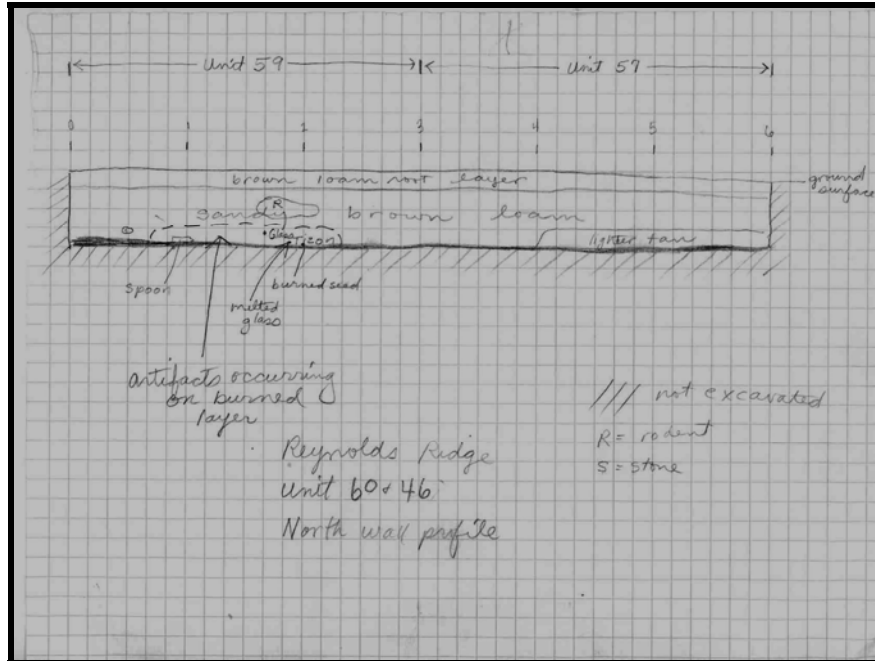 Unit 59 Unit 57
0 1 2 3 4 5 6
brown loam root layer
ground
surface
R
sandy brown loam
Glass
lighter tan
spoon
burned seed
melted
glass
artifacts occurring
on burned
layer
/// not excavated
R = rodent
S = stone
Reynolds Ridge
Unit 60 & 46
North wall profile